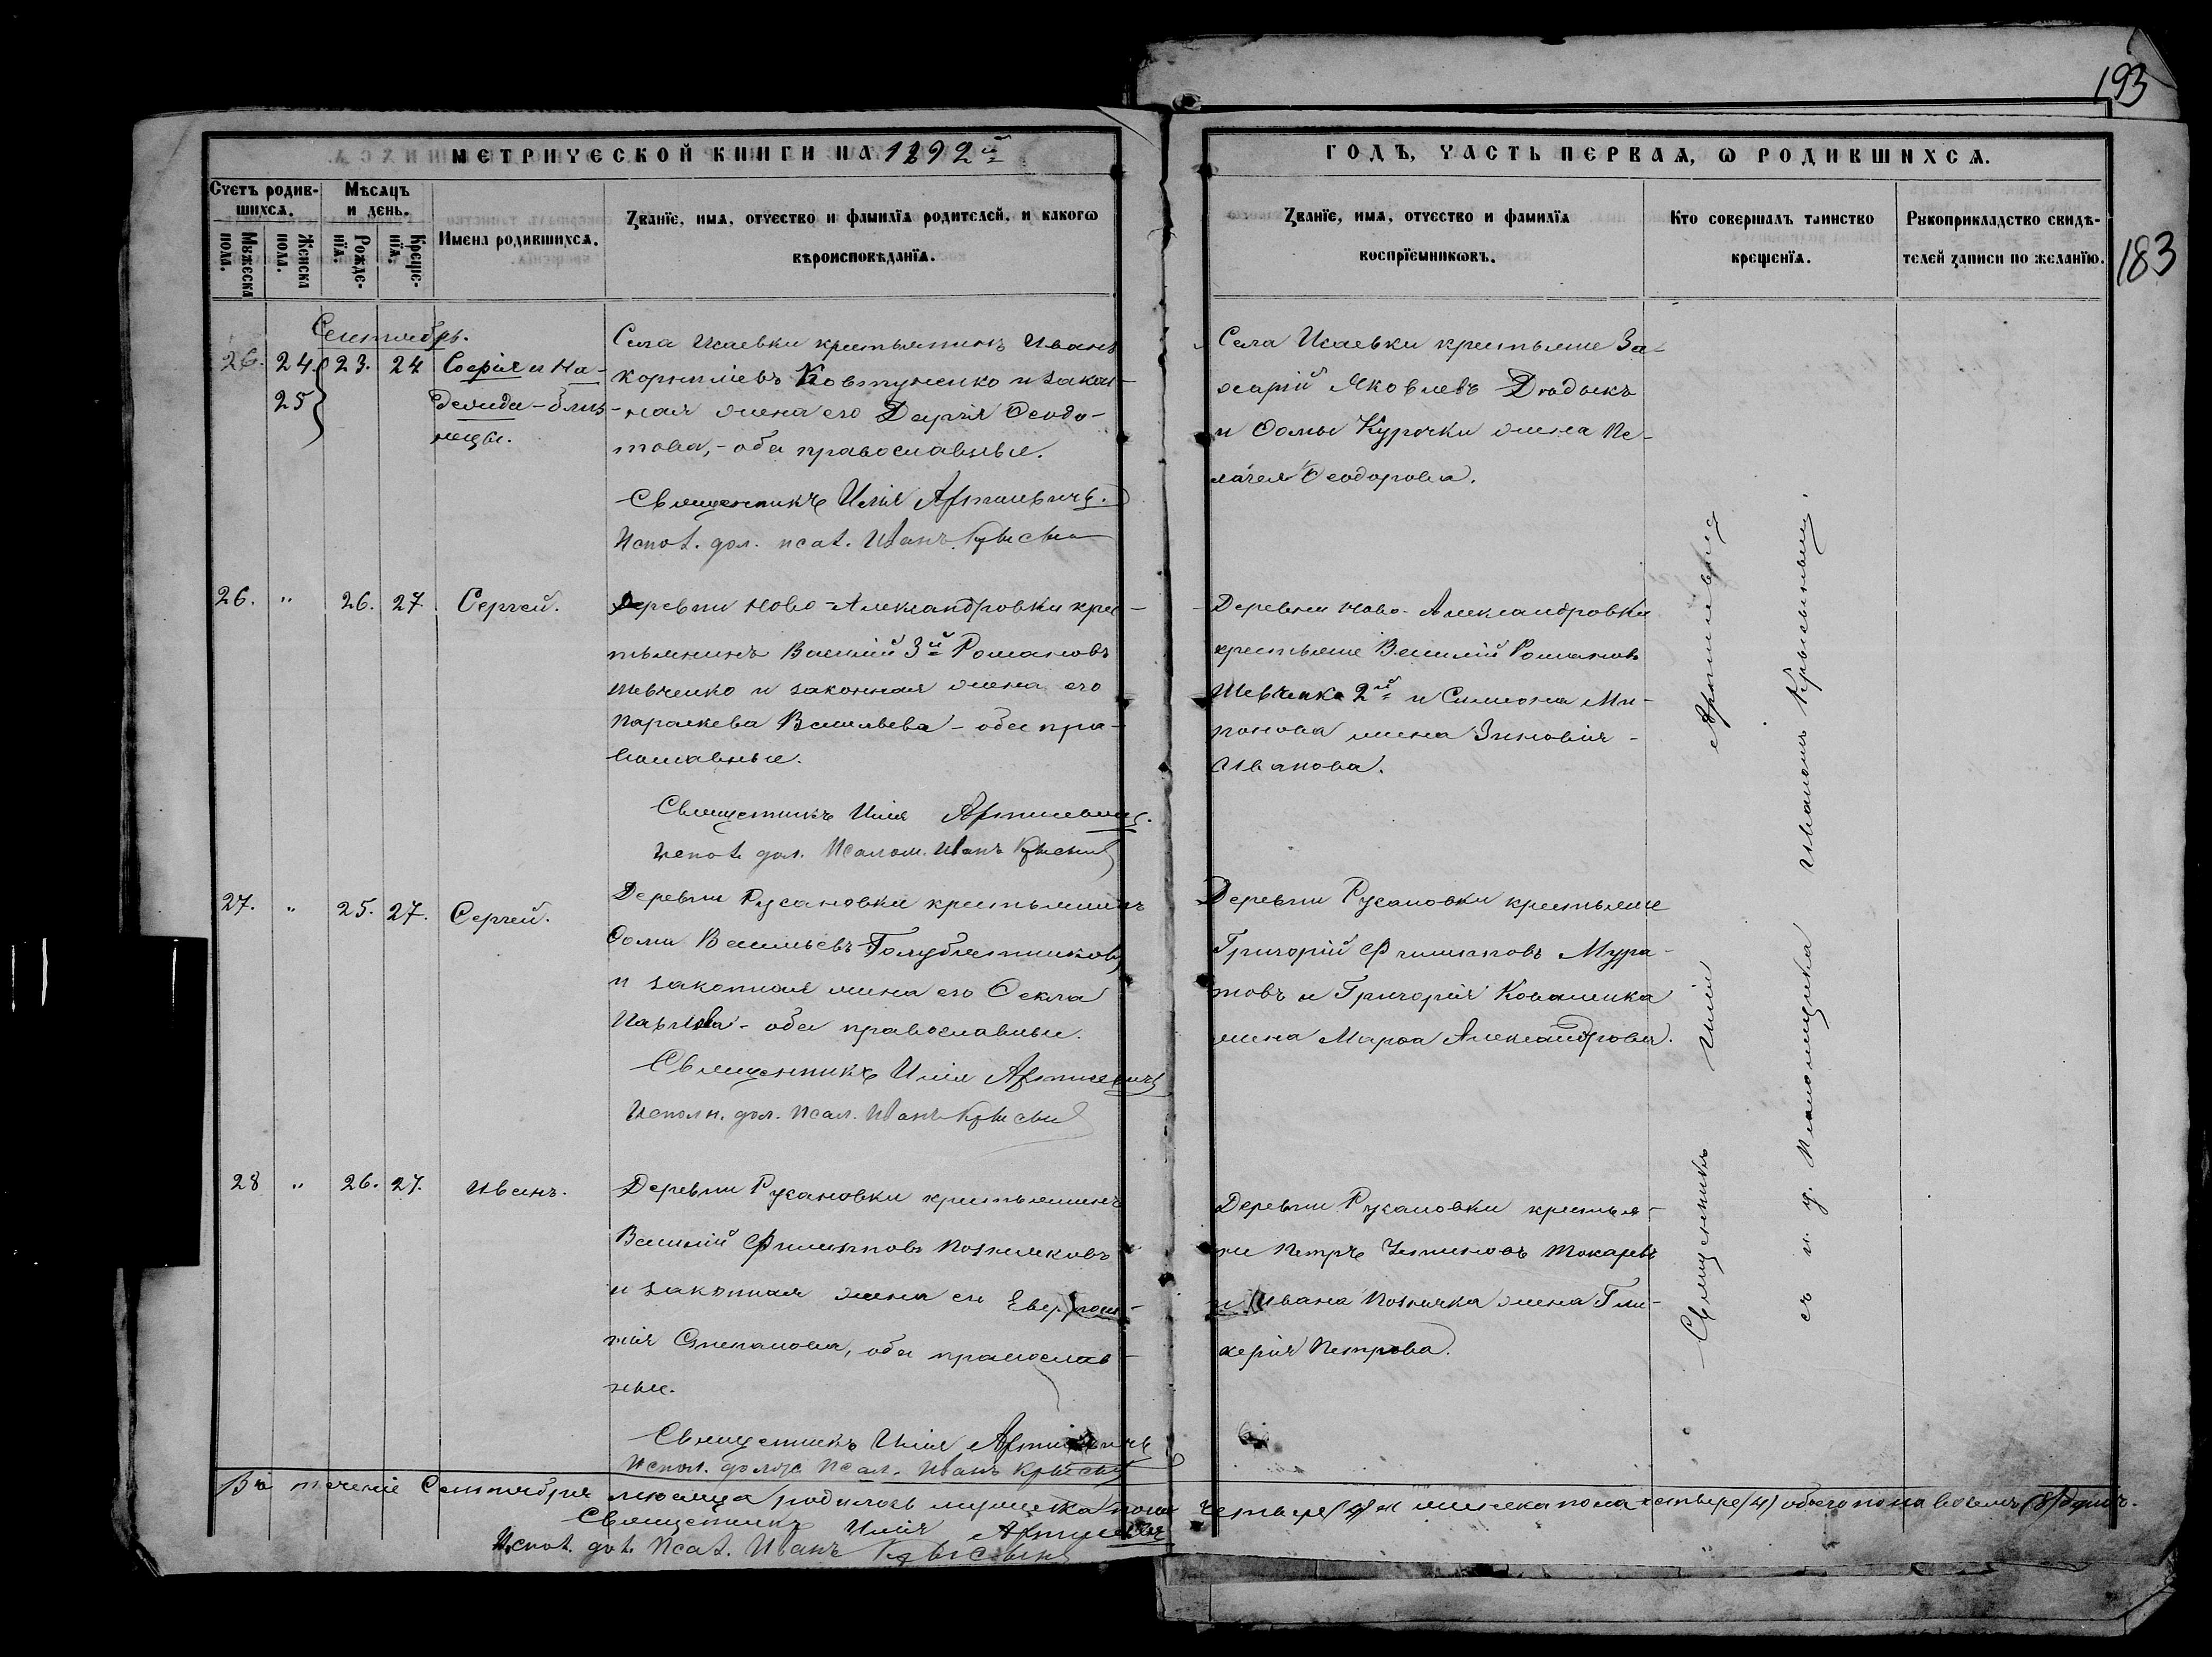 193
МЕТРИЧЕСКОЙ КНИГИ НА 1892й
ГОДЪ, ЧАСТЬ ПЕРВАЯ, Ѡ РОДИВШИХСЯ.
183
Счетъ родив-
шихся.
Мѣсяцъ
и день.
Мꙋжеска
пола.
Женска
пола.
Рожде-
нїя.
Креще-
нїя.
Имена родившихся.
Званїе, имя, отчество и фамилїя родителей, и какогѡ
вѣроисповѣданїя.
Званїе, имя, отчество и фамилїя
воспрїемникѡвъ.
Кто совершалъ таинство
крещенїя.
Рꙋкоприкладство свидѣ-
телей записи по желанїю.
Сентябрь.
26. 24. 23. 24 Софія и На-
25
дежда - близ-
нецы.
Села Исаевки крестьянинъ Иванъ
Корниліевъ Ковтуненко и закон-
ная жена его Дарія Ѳеодо-
това, - оба православные.
Священникъ Илія Артишевичъ.
Испол. дол. псал. Иванъ Крысынъ
Села Исаевки крестьяне За-
харій Яковлевъ Дюдыкъ
и Ѳомы Курочки жена Пе-
лагея Ѳеодорова.
26. " 26. 27 Сергей.
Деревни Ново-Александровки крес-
тьянинъ Василій 3й Романовъ
Шевченко и законная жена его
Параскева Васильева - оба пра-
вославные.
Священникъ Илія Артишевичъ.
Испол. дол. Псалом. Иванъ Крысынъ
Деревни Ново-Александровки
крестьяне Василій Романовъ
Шевченко 2й и Симеона Ми-
ронова жена Зиновія
Иванова.
27. " 25. 27. Сергей.
Деревни Русановки крестьянинъ
Ѳома Васильевъ Голубятниковъ
и законная жена его Ѳекла
Павлова - оба православные.
Священникъ Илія Артишевичъ
Исполн. дол. Псал. Иванъ Крысынъ
Деревни Русановки крестьяне
Григорій Филипповъ Мура-
товъ и Григорія Коваленка
жена Марѳа Александрова.
28 " 26. 27. Иванъ.
Деревни Русановки крестьянинъ
Василій Филипповъ Позняковъ
и законная жена его Евфроси-
нія Степанова, оба православ-
ные.
Священникъ Илія Артишевичъ
Испол. должн. Псал. Иванъ Крысынъ
Деревни Русановки крестья-
не Петръ Токаревъ
и Ивана Позняка жена Гли-
керія Петрова.
Священникъ Илія Артишевичъ
съ и. д. Псаломщика Иваномъ Крысынымъ.
Въ теченіе Сентября мѣсяца родилось мужеска пола четыре (4) и женска пола четыре (4) обоего пола восемь (8) душъ.
Священникъ Илія Артишевичъ
Испол. дол. Псал. Иванъ Крысынъ